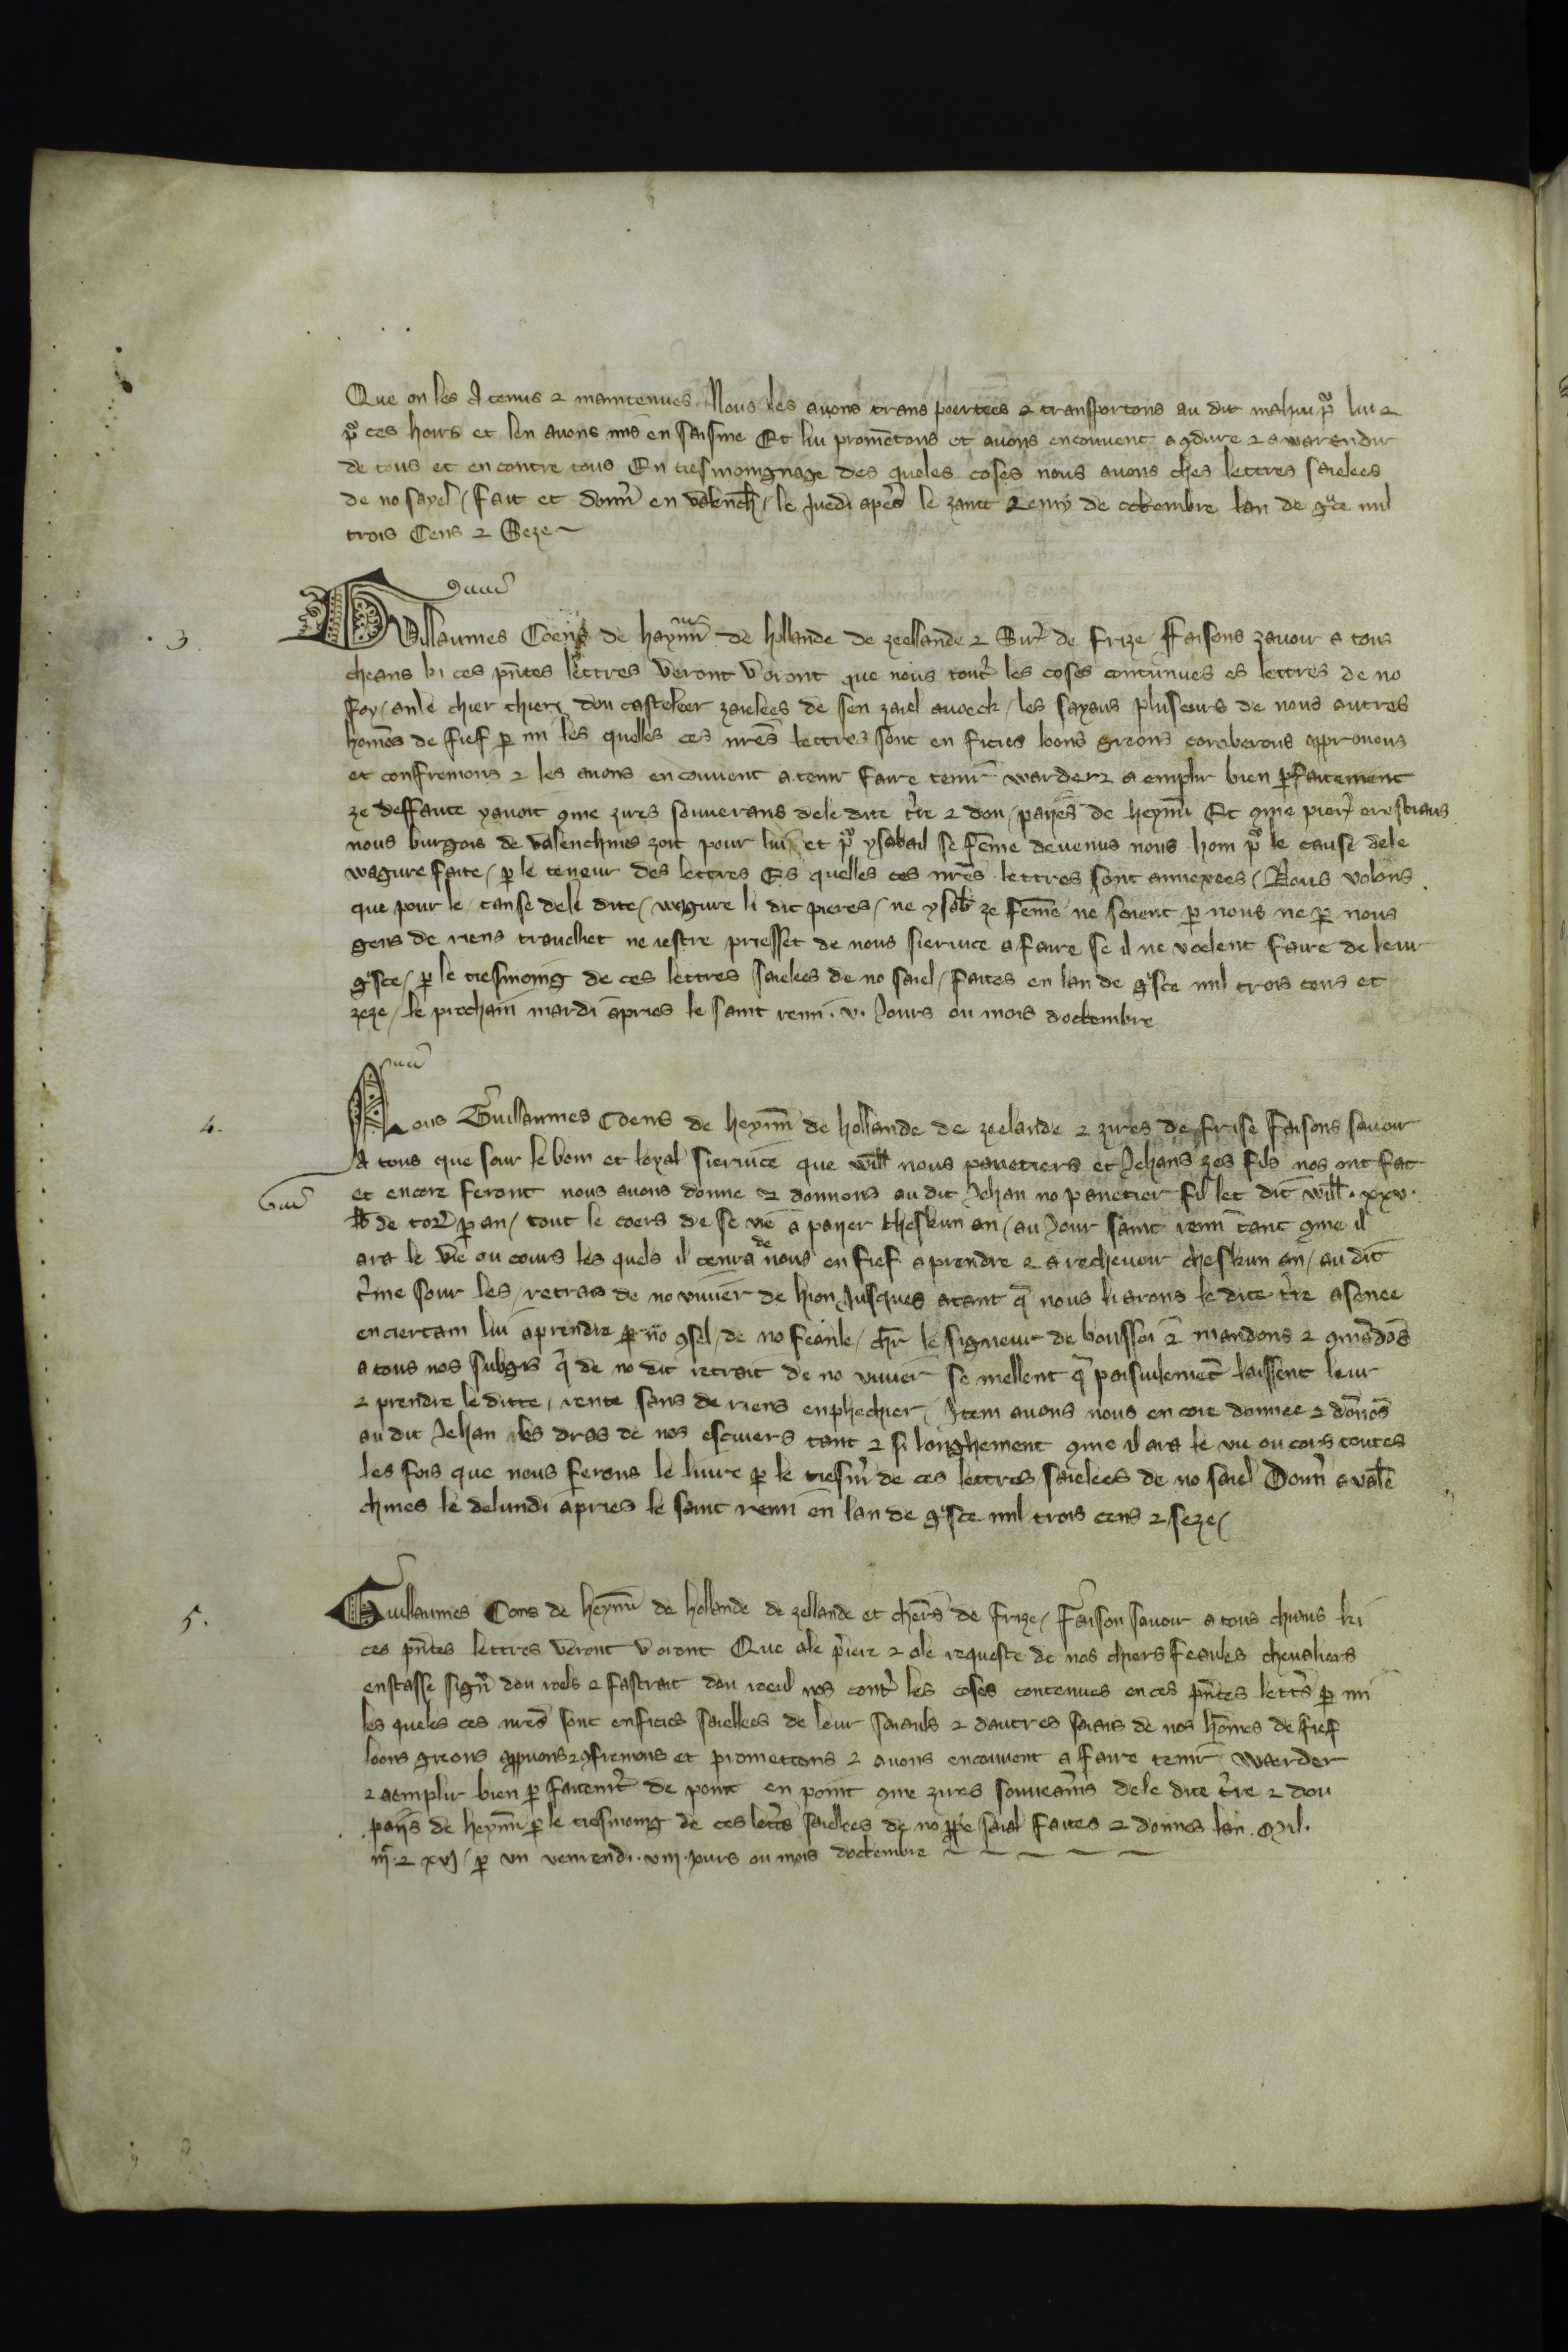 Que on les A tenus ⁊ maintenues Nous les auons trans poertees ⁊ transportons au dit mahiu pͦ lui ⁊
pͦ ces hoirs et len auons mis en saisine Et lui prometons et auons encouuent a ꝯdure ⁊ a warandir
de tous et en contre tous En tiesmoingnage des queles coses nous auons ches lettres saielees
de no sayel / fait et donn̄ en valench̄ / le Juedi apēs le zaint Remy de octembre lan de gͣce mil
trois Cens ⁊ Seze
3
Willaumes Coens de haynn̄ de hollande de zeellande ⁊ Sir̄ de frize / Faisons zauoir a tous
cheans ki ces pn̄tes lettres veront voront que nous tout̄ les coses contunues es lettres de no
foy / aule chier chier dou casteleer zaielees de sen zaiel auoeck / les sayaus pluseurs de nous autres
homēs de fief ꝑ mi les quelles ces nr̄es lettres sont en ficies loons greons coroberons approuons
et confremons ⁊ les auons en couuent a tenir faire tenir warder ⁊ a emplir bien ꝑfaitement
ze deffaute yauoit ꝯme zires souuerans dele dite tr̄e ⁊ dou / payes de heynn̄ Et ꝯme pier̄ crestiaus
nous burgois de valenchines zoit pour lui et pͦ ysabail se feme deuenus nous hom pͦ le cause dele
wagure faite / ꝑ le teneur des lettres Es quelles ces nr̄es lettres sont annexees / Nous volons
que pour le / cause dele dite / wagure li dit pieres / ne ysab̄ ze femē ne soient ꝑ nous ne ꝑ nous
gens de riens trauelhet ne iestre priesset de nous sieruice a faire se il ne voelent faire de leur
gͣsce / ꝑ le tiesmoing de ces lettres saielees de no saiel / faites en lan de gͣsce mil trois cens et
zeze / le prochain mardi apries le saint remi . v . Jours ou mois doctembre
4.
Nous Guillaumes Coens de heynn̄ de hollande de zeelande ⁊ zires de frise faisons sauoir
A tous que sour le boin et loyal sieruice que will̄ nous panetiers et Jehans zes fils nos ont fat
et encore feront nous auons donne ⁊ donnons au dit Jehan no panetier fil let dit will̄ . xxv .
lb̄ de tor̄ ꝑ an / tout le coers de se vie a payer cheskun an / au Jour saint remi tant ꝯme il
ara le vie ou cours les quels il tenra de nous en fief a prendre ⁊ a recheuoir cheskun an / au dit
t̄me sour les / retrais de no viuier de hion Jusques atant q̄ nous li arons le dite tr̄e asenee
en certain liu aprendre ꝑ no ꝯsel / de no feaule / ch̄r le signeur de boussoi ⁊ mandons ⁊ ꝯmādos̄
a tous nos subgis q̄ de no dit retrait de no viuier se mellent q̄ paisiulemēt laissent leur
⁊ prendre le ditte / rente sans de riens enphechier / Item auons nous en core donnee ⁊ dōnos̄
au dit Jehan les dras de nos escuiers tant ⁊ si longhement ꝯme il ara le vie ou cors toutes
les fois que nous ferons le liure ꝑ le tiesm̄ de ces lettres saielees de no saiel Donn̄ a valē
chines le delundi apries le saint remi en lan de gͣsce mil trois cens ⁊ seze /
5.
Guillaumes Cons de heynn̄ de hollande de zellande et chers̄ de frize / Faison sauoir a tous chiaus ki
ces pn̄tes lettres veront voront Que ale p̄iere ⁊ ale requeste de nos chiers feaules cheualiers
enstasse sign̄ dou roels ⁊ fastrait dou roeul nos cont̄ les coses contenues en ces pn̄tes lettr̄s ꝑ mi
les queles ces nr̄es sont enficies saiellees de leur saiauls ⁊ dautres saiaus de nos hōmes de fief
loons greons appuons ⁊ ꝯfremons et promettons ⁊ auons encouuent a faire tenir warder
⁊ aemplir bien ꝑ faitem̄t de point en point ꝯme zires souueār̄ns dele dite tr̄e ⁊ dou
payis de heynn̄ ꝑ le tiesmoing de ces lettr̄s saiellees de no ꝓpre saial faites ⁊ donnes lan . Mil .
iijͨ . ⁊ xvj / ꝑ vn venrendi . viij . jours ou mois doctembre